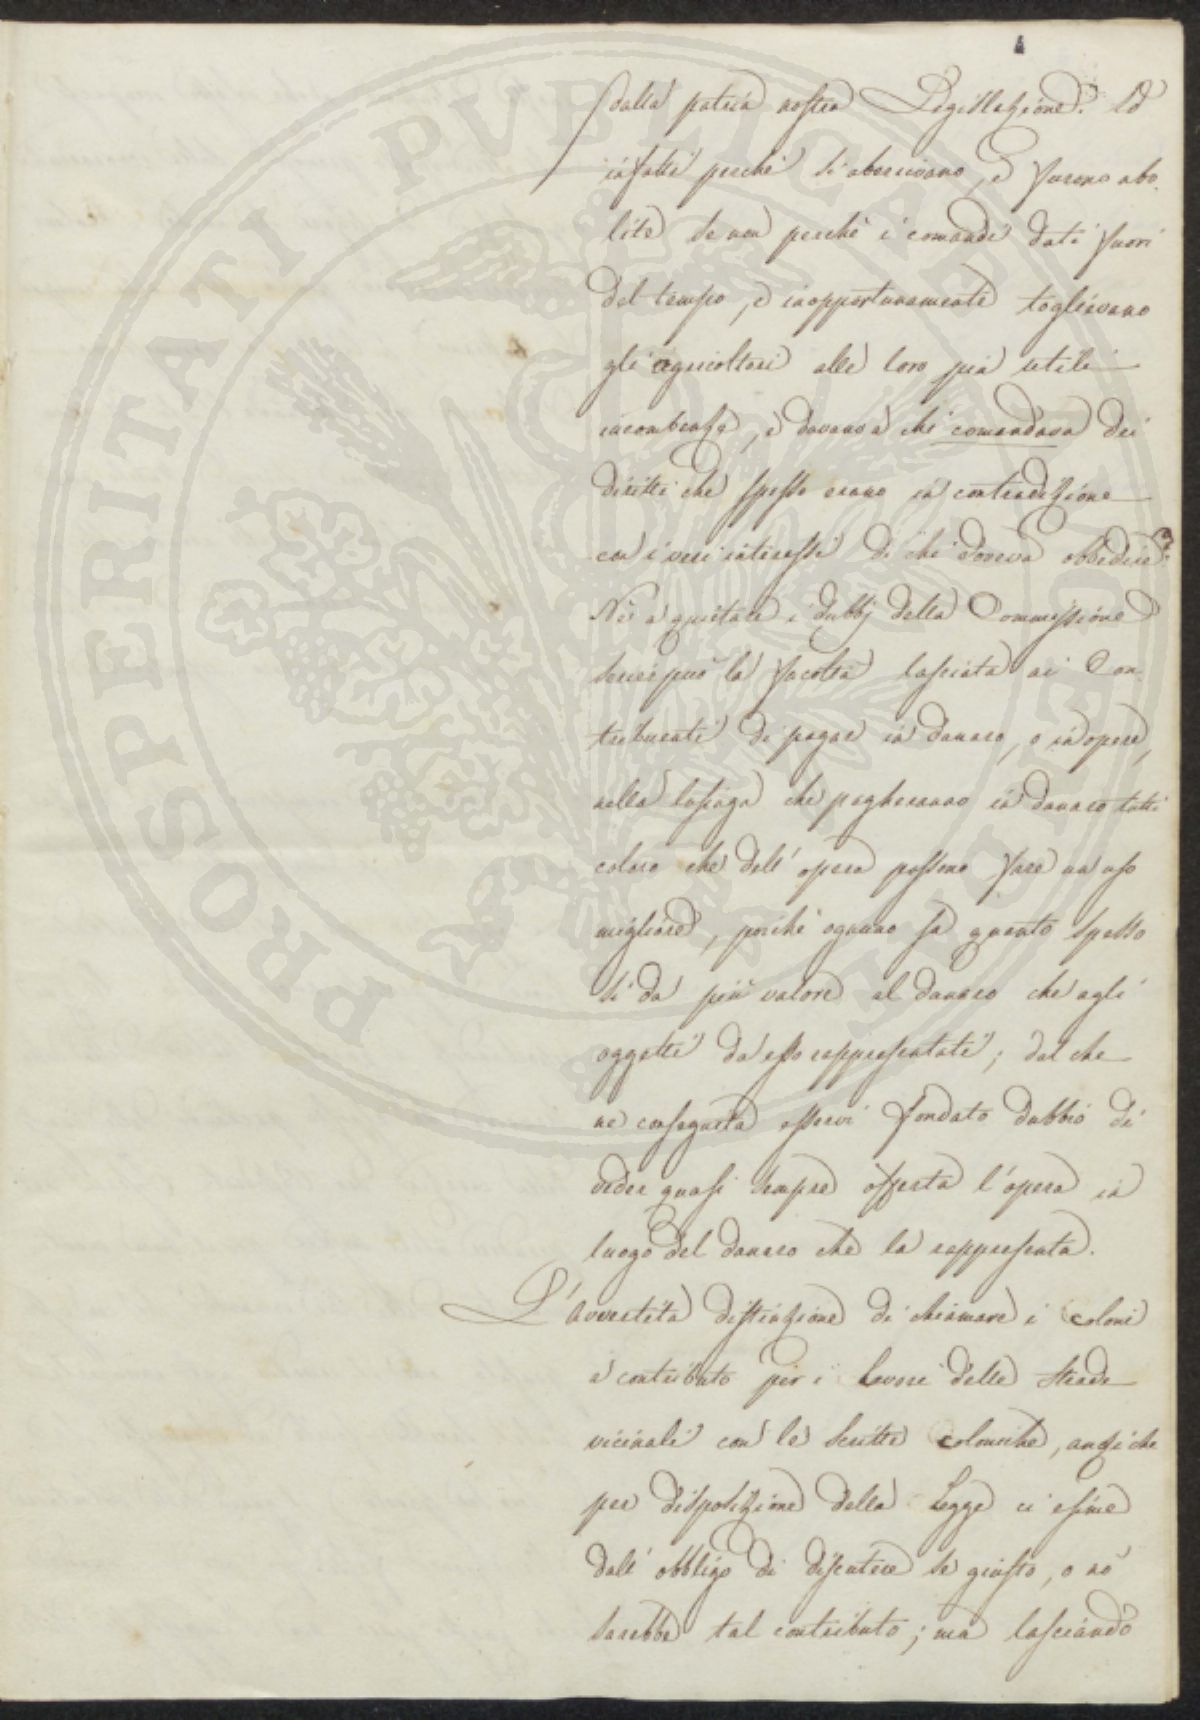 4
dalla patria nostra Legislazione. Ed
infatti perchè si aborrivano, e furono abo-
lite se non perchè i comandi dati fuori
del tempo, e inopportunamente toglievano
gli agricoltori alle loro più utili
incombenze, e davano a chi comandava dei
diritti che spesso erano in contradizione
con i veri interessi di chi doveva obbedire?
Nè a quietare i dubbj della Commissione
servir può la facoltà lasciata ai Con-
tribuenti di pagare in danaro, o in opere,
nella lusinga che pagheranno in danaro tutti
coloro che dell'opera possono fare un uso
migliore, poichè ognuno sa quanto spesso
si da più valore al danaro che agli
oggetti da esso rappresentati; dal che
ne conseguita esservi fondato dubbio di
veder quasi sempre offerta l'opera in
luogo del danaro che la rappresenta.
L'avvertita distinzione di chiamare i coloni
a contributo per i lavori delle strade
vicinali con le scritte coloniche, anzi che
per disposizione della Legge ci esime
dall'obbligo di discutere se giusto, o nò
sarebbe tal contributo; ma lasciando
PROSPERITATI PVBLICAE